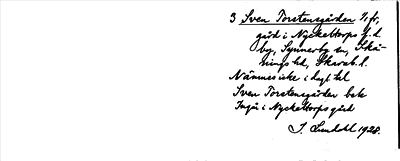 3 Sven Torstensgården 1/1 fr,
gård i Nyckeltorps f.d.
by, Synnerby sn, Skå-
nings hd, Skarab. l.
Nämnes icke i dryt hd
Sven Torstensgården bek
Ingå i Nyckeltorps gård
J. Lundahl 1928.